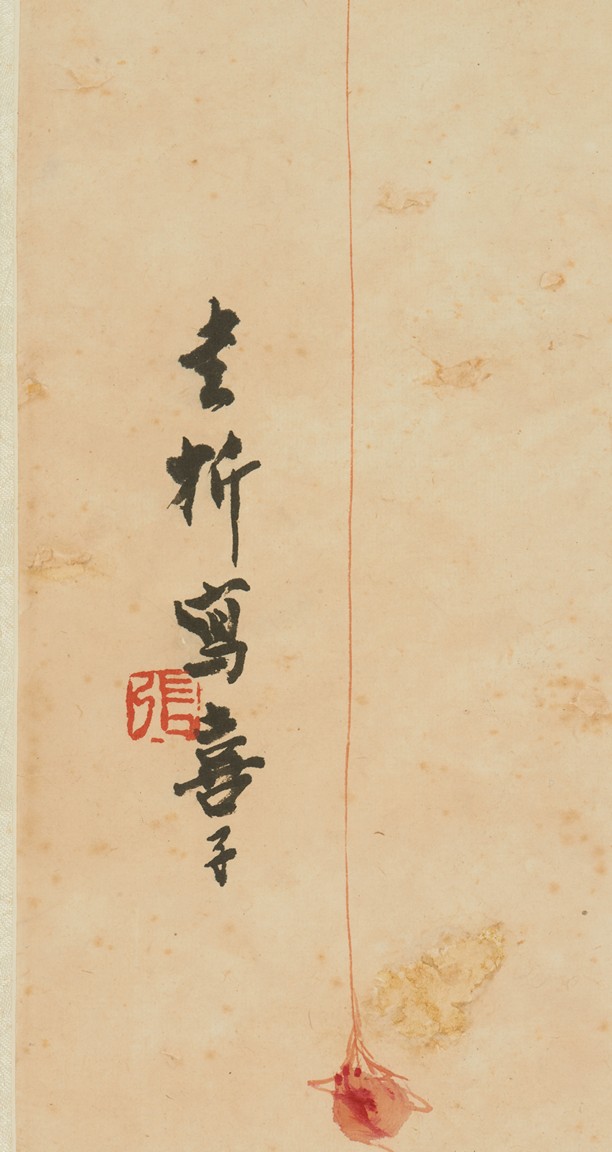 書旂寫喜子
張